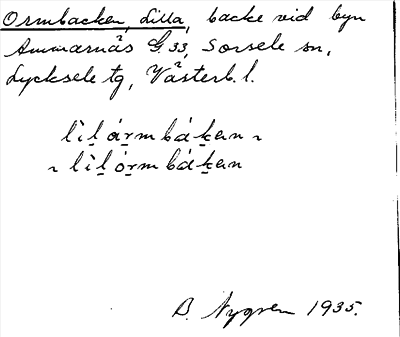 Ormbacken, Lilla, backe vid byn
Ammarnäs G. 33, Sorsele sn,
Lycksele tg, Västerb. l.
lìl̠ár̠mbák̠en ~
~ lìl̠ór̠mbák̠en
B. Nygren 1935.